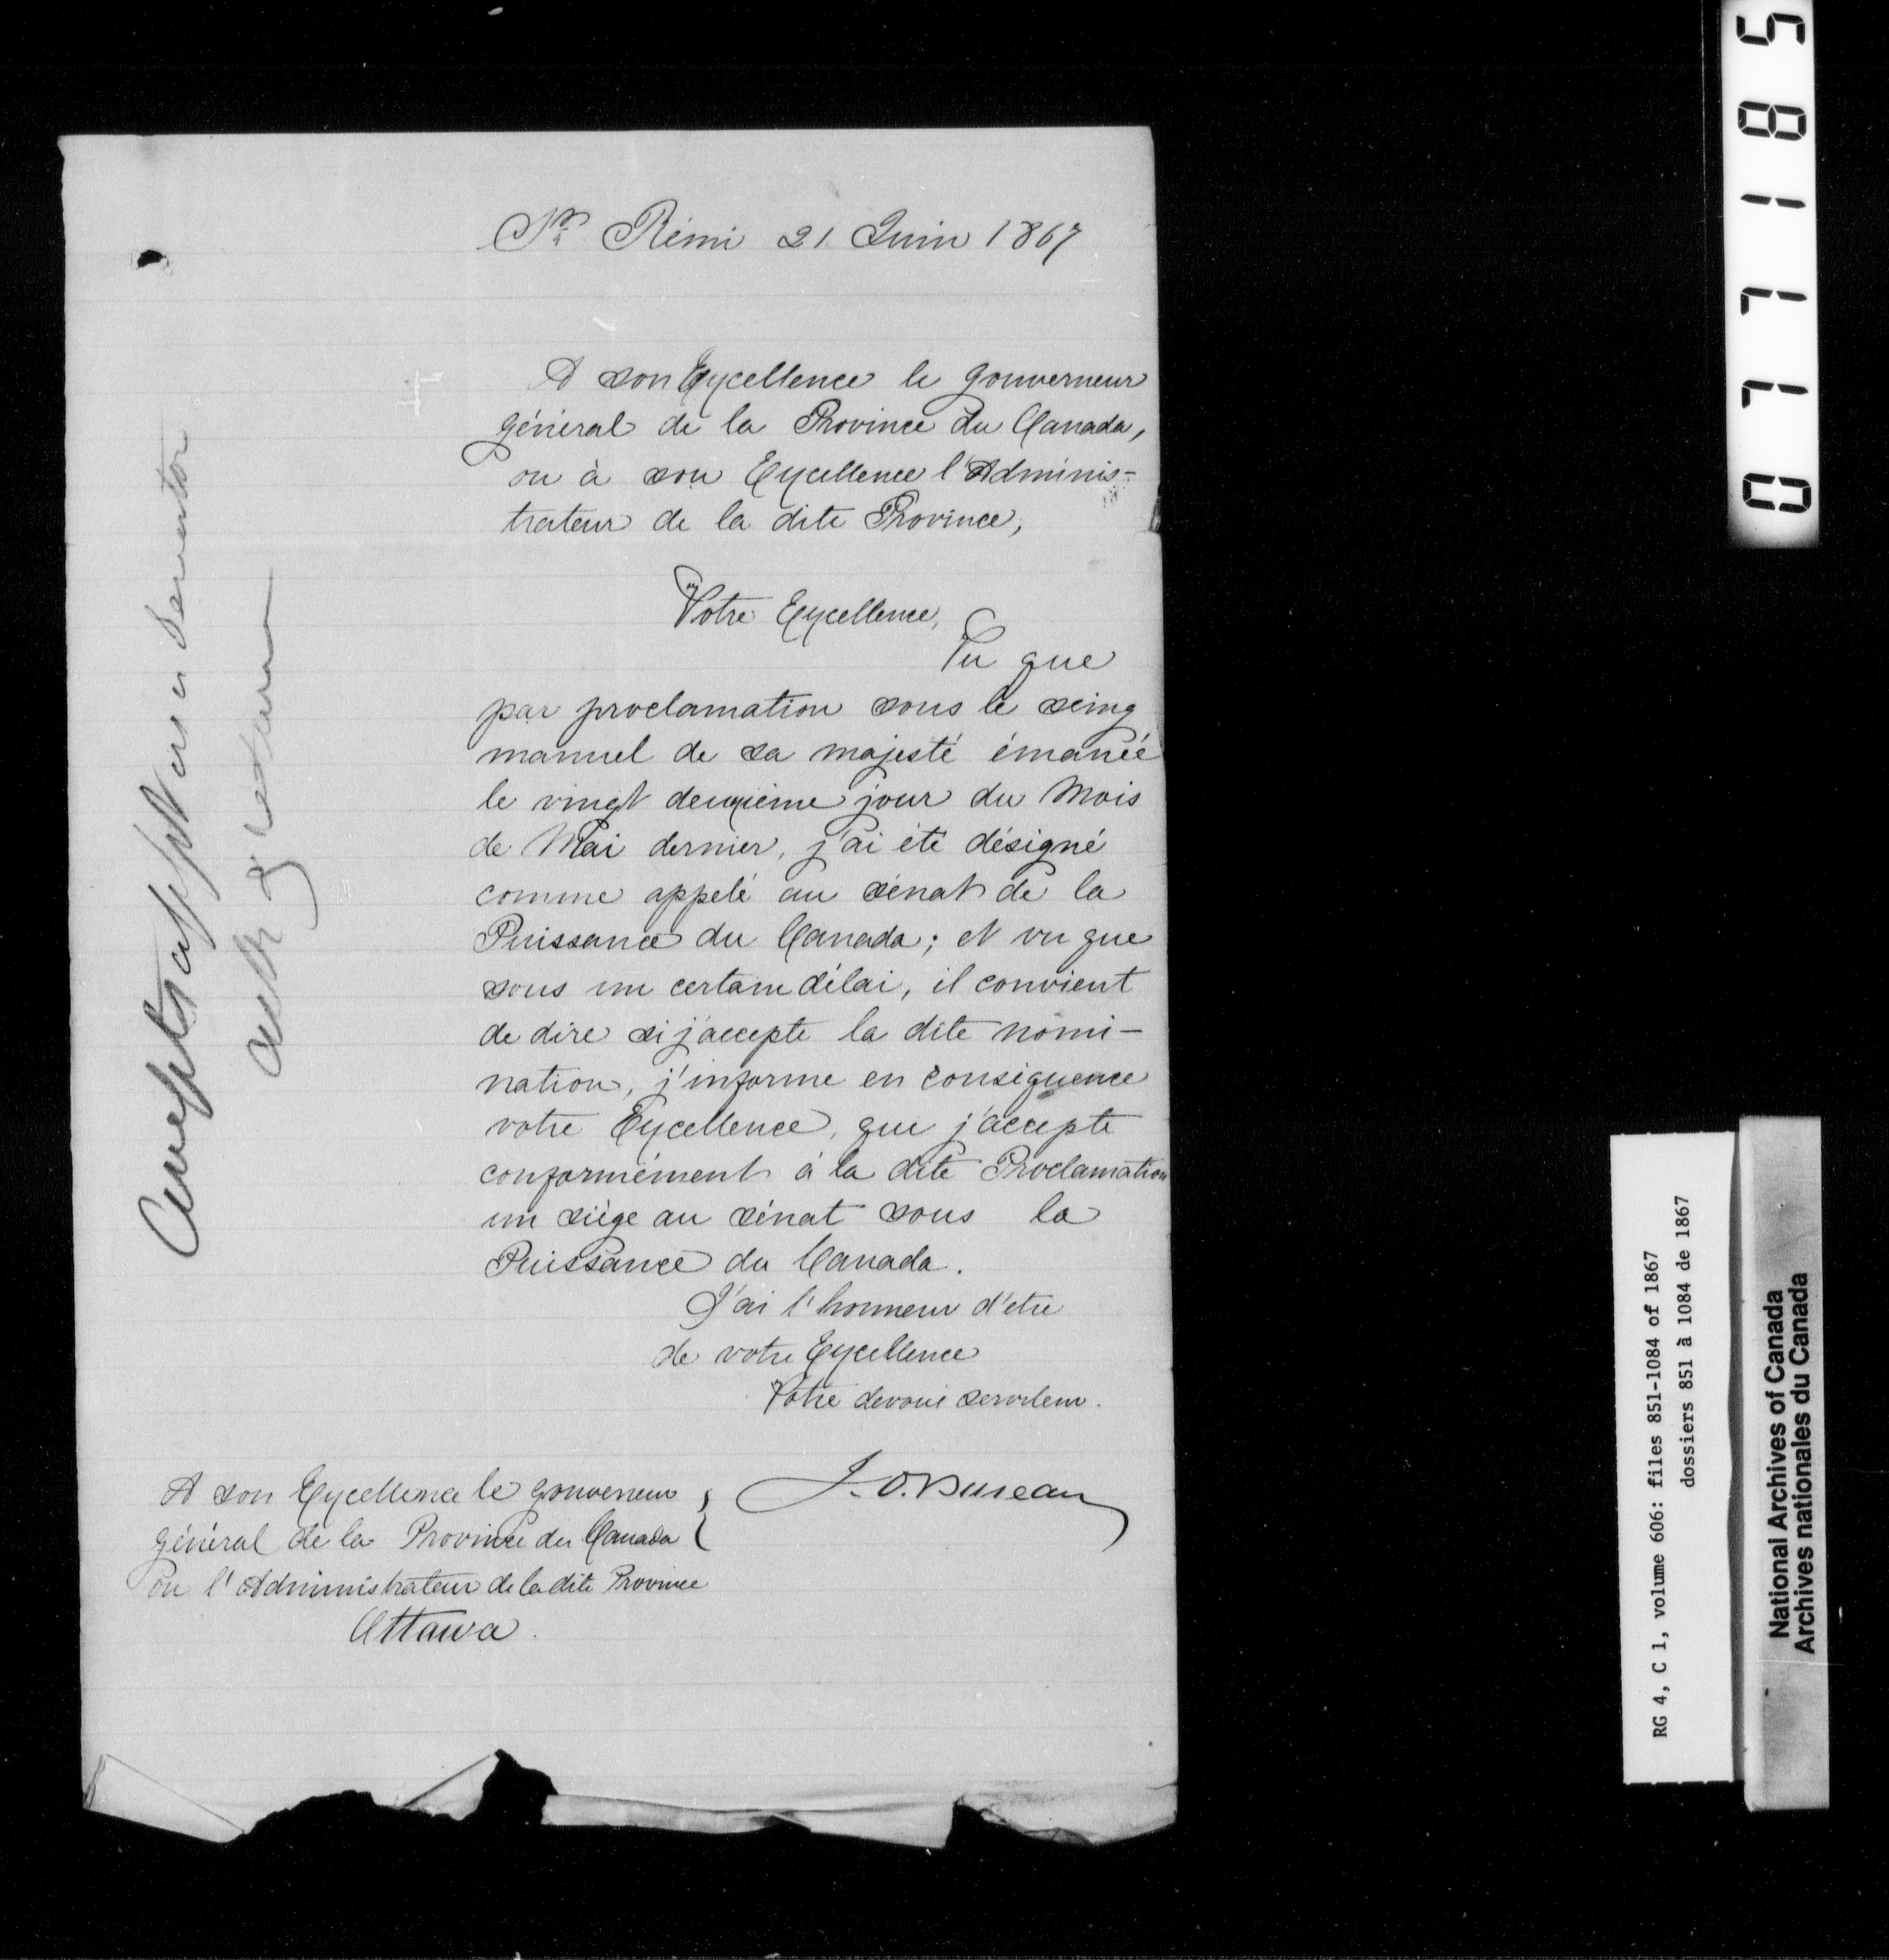 St Rémi 21 Juin 1867
A son Excellence le gouverneur
général de la Province du Canada,
ou à son Excellence l'Adminis-
trateur de la dite Province,
Votre Excellence,
Vu que
par proclamation sous le seing
manuel de sa majesté émanée
le vingt deuxième jour du Mois
de Mai dernier, j'ai été désigné
comme appelé au sénat de la
Puissance du Canada; et vu que
sous un certain délai, il convient
de dire si j'accepte la dite nomi-
nation, j'informe en conséquence
votre Excellence, que j'accepte
conformément à la dite Proclamation
un siège au sénat sous la
Puissance du Canada.
J'ai l'honneur d'etre
de votre Excellence
Votre devoué serviteur.
J. O. Bureau
A son Excellence le gouverneur
général de la Province du Canada
ou l'Administrateur de la dite Province
Ottawa.
Accepts appt as a Senator
077185
RG 4, C 1, volume 606: files 851-1084 of 1867
dossiers 851 à 1084 de 1867
National Archives of Canada
Archives nationales du Canada